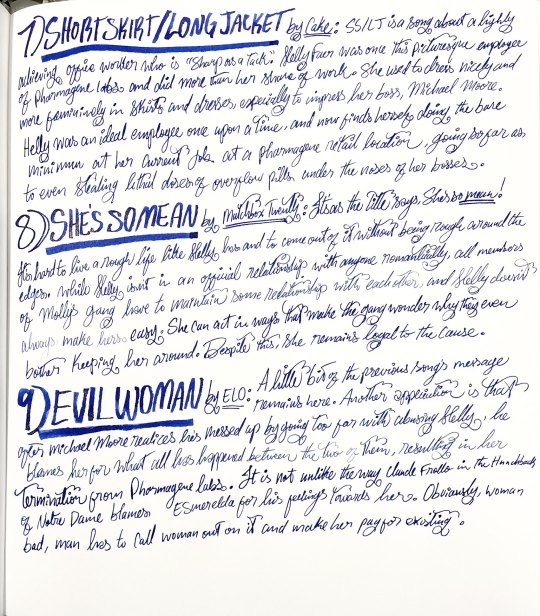 7) SHORT SKIRT/LONG JACKET by Cake: SS/LJ is a song about a highly
achieving office worker who is "sharp as a tack". Shelly Fuer was once this picturesque employee
of pharmagene labs and did more than her share of work. She used to dress nicely and
more femininely in skirts and dresses, especially to impress her boss, Michael Moore.
Helly was an ideal employee once upon a time, and now finds herself doing the bare
minimum at her current job at a pharmagene retail location, going so far as
to even stealing lethal doses of overflow pills under the noses of her bosses.
8) SHE'S SO MEAN by Matchbox Twenty: It's as the title says, She's so mean!
It's hard to live a rough life like Shelly has and to come out of it without being rough around the
edges. While Shelly isn't in an official relationship with anyone romantically, all members
of Molly's gang have to maintain some relationship with each other, and Shelly doesn't
always make hers easy. She can act in ways that make the gang wonder why they even
bother keeping her around. Despite this, she remains loyal to the cause.
9) DEVIL WOMAN by ELO: A little bit of the previous song's message
remains here. Another application is that
after Michael Moore realices his messed up by going too far with abusing Shelly, he
blames her for what all has happened between the two of them, resulting in her
Termination from Pharmagene labs. It is not unlike the way Claude Frollo in the Hunchback
of Notre Dame blames Esmerelda for his feelings towards her. Obviously, woman
bad, man has to call woman out on it and make her pay for existing.